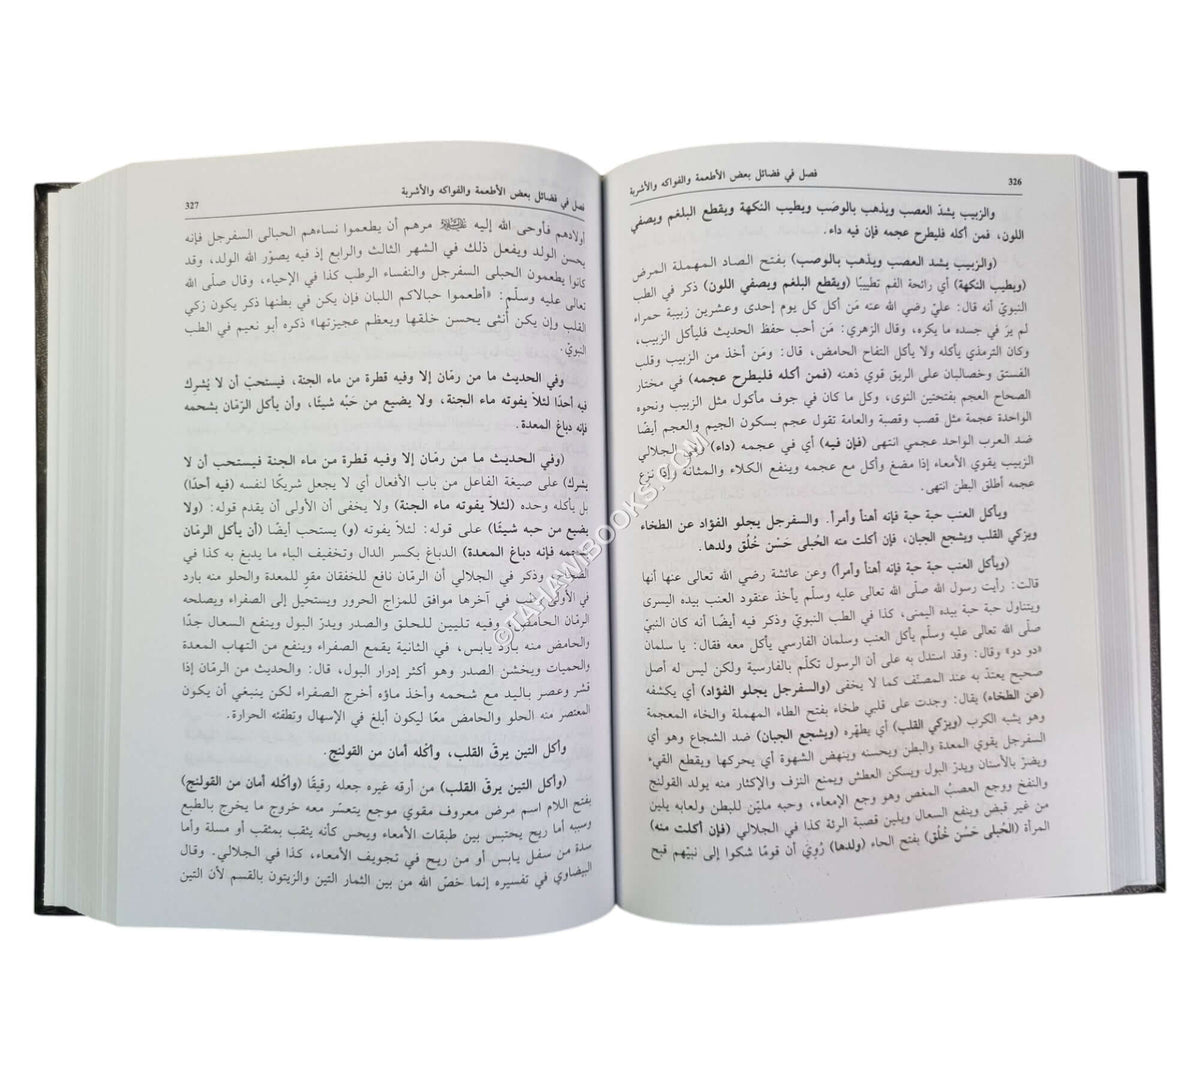 326
فصل في فضائل بعض الأطعمة والفواكه والأشربة
والزبيب يشدّ العصب ويذهب بالوصَب ويطيب النكهة ويقطع البلغم ويصفي
اللون، فمن أكله فليطرح عجمه فإن فيه داء.
(والزبيب يشد العصب ويذهب بالوصب) بفتح الصاد المهملة المرض
(ويطيب النكهة) أي رائحة الفم تطييبًا (ويقطع البلغم ويصفي اللون) ذكر في الطب
النبويّ أنه قال: عليّ رضي الله عنه من أكل كل يوم إحدى وعشرين زبيبة حمراء
لم يرَ في جسده ما يكره، وقال الزهري: مَن أحب حفظ الحديث فليأكل الزبيب،
وكان الترمذي يأكله ولا يأكل التفاح الحامض، قال: ومَن أخذ من الزبيب وقلب
الفستق وخصالبان على الريق قوي ذهنه (فمن أكله فليطرح عجمه) في مختار
الصحاح العجم بفتحتين النوى، وكل ما كان في جوف مأكول مثل الزبيب ونحوه
الواحدة عجمة مثل قصب وقصبة والعامة تقول عجم بسكون الجيم والعجم أيضًا
ضد العرب الواحد عجمي انتهى (فإن فيه) أي في عجمه (داء) وفي الجلالي
الزبيب يقوي الأمعاء إذا مضغ وأكل مع عجمه وينفع الكلاء والمثانة وإذا نزع
عجمه أطلق البطن انتهى.
ويأكل العنب حبة حبة فإنه أهنأ وأمرأ. والسفرجل يجلو الفؤاد عن الطخاء
ويزكي القلب ويشجع الجبان، فإن أكلت منه الحُبلى حَسْن خُلُق ولدها.
(ويأكل العنب حبة حبة فإنه أهنأ وأمرأ) وعن عائشة رضي الله تعالى عنها أنها
قالت: رأيت رسول الله صلّى الله تعالى عليه وسلّم يأخذ عنقود العنب بيده اليسرى
ويتناول حبة حبة بيده اليمنى، كذا في الطب النبويّ وذكر فيه أيضًا أنه كان النبيّ
صلّى الله تعالى عليه وسلّم يأكل العنب وسلمان الفارسي يأكل معه فقال: يا سلمان
«دو دو» وقال: وقد استدل به على أن الرسول تكلّم بالفارسية ولكن ليس له أصل
صحيح يعتدّ به عند المصنّف كما لا يخفى (والسفرجل يجلو الفؤاد) أي يكشفه
(عن الطخاء) يقال: وجدت على قلبي طخاء بفتح الطاء المهملة والخاء المعجمة
وهو يشبه الكرب (ويزكي القلب) أي يطهّره (ويشجع الجبان) ضد الشجاع وهو أي
السفرجل يقوي المعدة والبطن ويحسنه وينهض الشهوة أي يحركها ويقطع القيء
ويضرّ بالأسنان ويدرّ البول ويسكن العطش ويمنع النزف والإكثار منه يولد القولنج
والنفخ ووجع العصب المغص وهو وجع الإمعاء، وحبه مليّن للبطن ولعابه يلين
من غير قبض وينفع السعال ويلين قصبة الرئة كذا في الجلالي (فإن أكلت منه)
المرأة (الحُبلى حَسْن خُلُق) بفتح الحاء (ولدها) رُوِيَ أن قومًا شكوا إلى نبيّهم قبح
فصل في فضائل بعض الأطعمة والفواكه والأشربة
327
أولادهم فأوحى الله إليه مرهم أن يطعموا نساءهم الحبالى السفرجل فإنه
يحسن الولد ويفعل ذلك في الشهر الثالث والرابع إذ فيه يصوّر الله الولد، وقد
كانوا يطعمون الحبلى السفرجل والنفساء الرطب كذا في الإحياء، وقال صلّى الله
تعالى عليه وسلّم: «أطعموا حبالاكم اللبان فإن يكن في بطنها ذكر يكون زكي
القلب وإن يكن أُنثى يحسن خلقها ويعظم عجيزتها» ذكره أبو نعيم في الطب
النبويّ.
وفي الحديث ما من رمّان إلا وفيه قطرة من ماء الجنة، فيستحبّ أن لا يُشرِك
فيه أحدًا لئلاّ يفوته ماء الجنة، ولا يضيع من حَبّه شيئًا، وأن يأكل الرّمّان بشحمه
فإنه دباغ المعدة.
(وفي الحديث ما من رمّان إلا وفيه قطرة من ماء الجنة فيستحب أن لا
يشرك) على صيغة الفاعل من باب الأفعال أي لا يجعل شريكًا لنفسه (فيه أحدًا)
بل يأكله وحده (لئلاّ يفوته ماء الجنة) ولا يخفى أن الأولى أن يقدم قوله: (ولا
يضيع من حبه شيئًا) على قوله: لئلاّ يفوته (و) يستحب أيضًا (أن يأكل الرمّان
بشحمه فإنه دباغ المعدة) الدباغ بكسر الدال وتخفيف الباء ما يدبغ به كذا في
وذكر في الجلالي أن الرمّان نافع للخفقان مقو للمعدة والحلو منه بارد
في الأولى في آخرها موافق للمزاج الحرور ويستحيل إلى الصفراء ويصلحه
الرمّان الحامض، وفيه تليين للحلق والصدر ويدرّ البول وينفع السعال جدًا
والحامض منه بارد يابس، في الثانية يقمع الصفراء وينفع من التهاب المعدة
والحميات ويخشن الصدر وهو أكثر إدرار البول، قال: والحديث من الرمّان إذا
قشر وعصر باليد مع شحمه وأخذ ماؤه أخرج الصفراء لكن ينبغي أن يكون
المعتصر منه الحلو والحامض معًا ليكون أبلغ في الإسهال وتطفئه الحرارة.
وأكل التين يرقّ القلب، وأكْله أمان من القولنج.
(وأكل التين يرقّ القلب) من أرقه غيره جعله رقيقًا (وأكْله أمان من القولنج)
بفتح اللام اسم مرض معروف مقوي موجع يتعسّر معه خروج ما يخرج بالطبع
وسببه أما ريح يحتبس بين طبقات الأمعاء ويحس كأنه يثقب بمثقب أو مسلة وأما
سدة من سفل يابس أو من ريح في تجويف الأمعاء، كذا في الجلالي. وقال
البيضاوي في تفسيره إنما خصّ الله من بين الثمار التين والزيتون بالقسم لأن التين
©TAHAWIBOOKS.COM